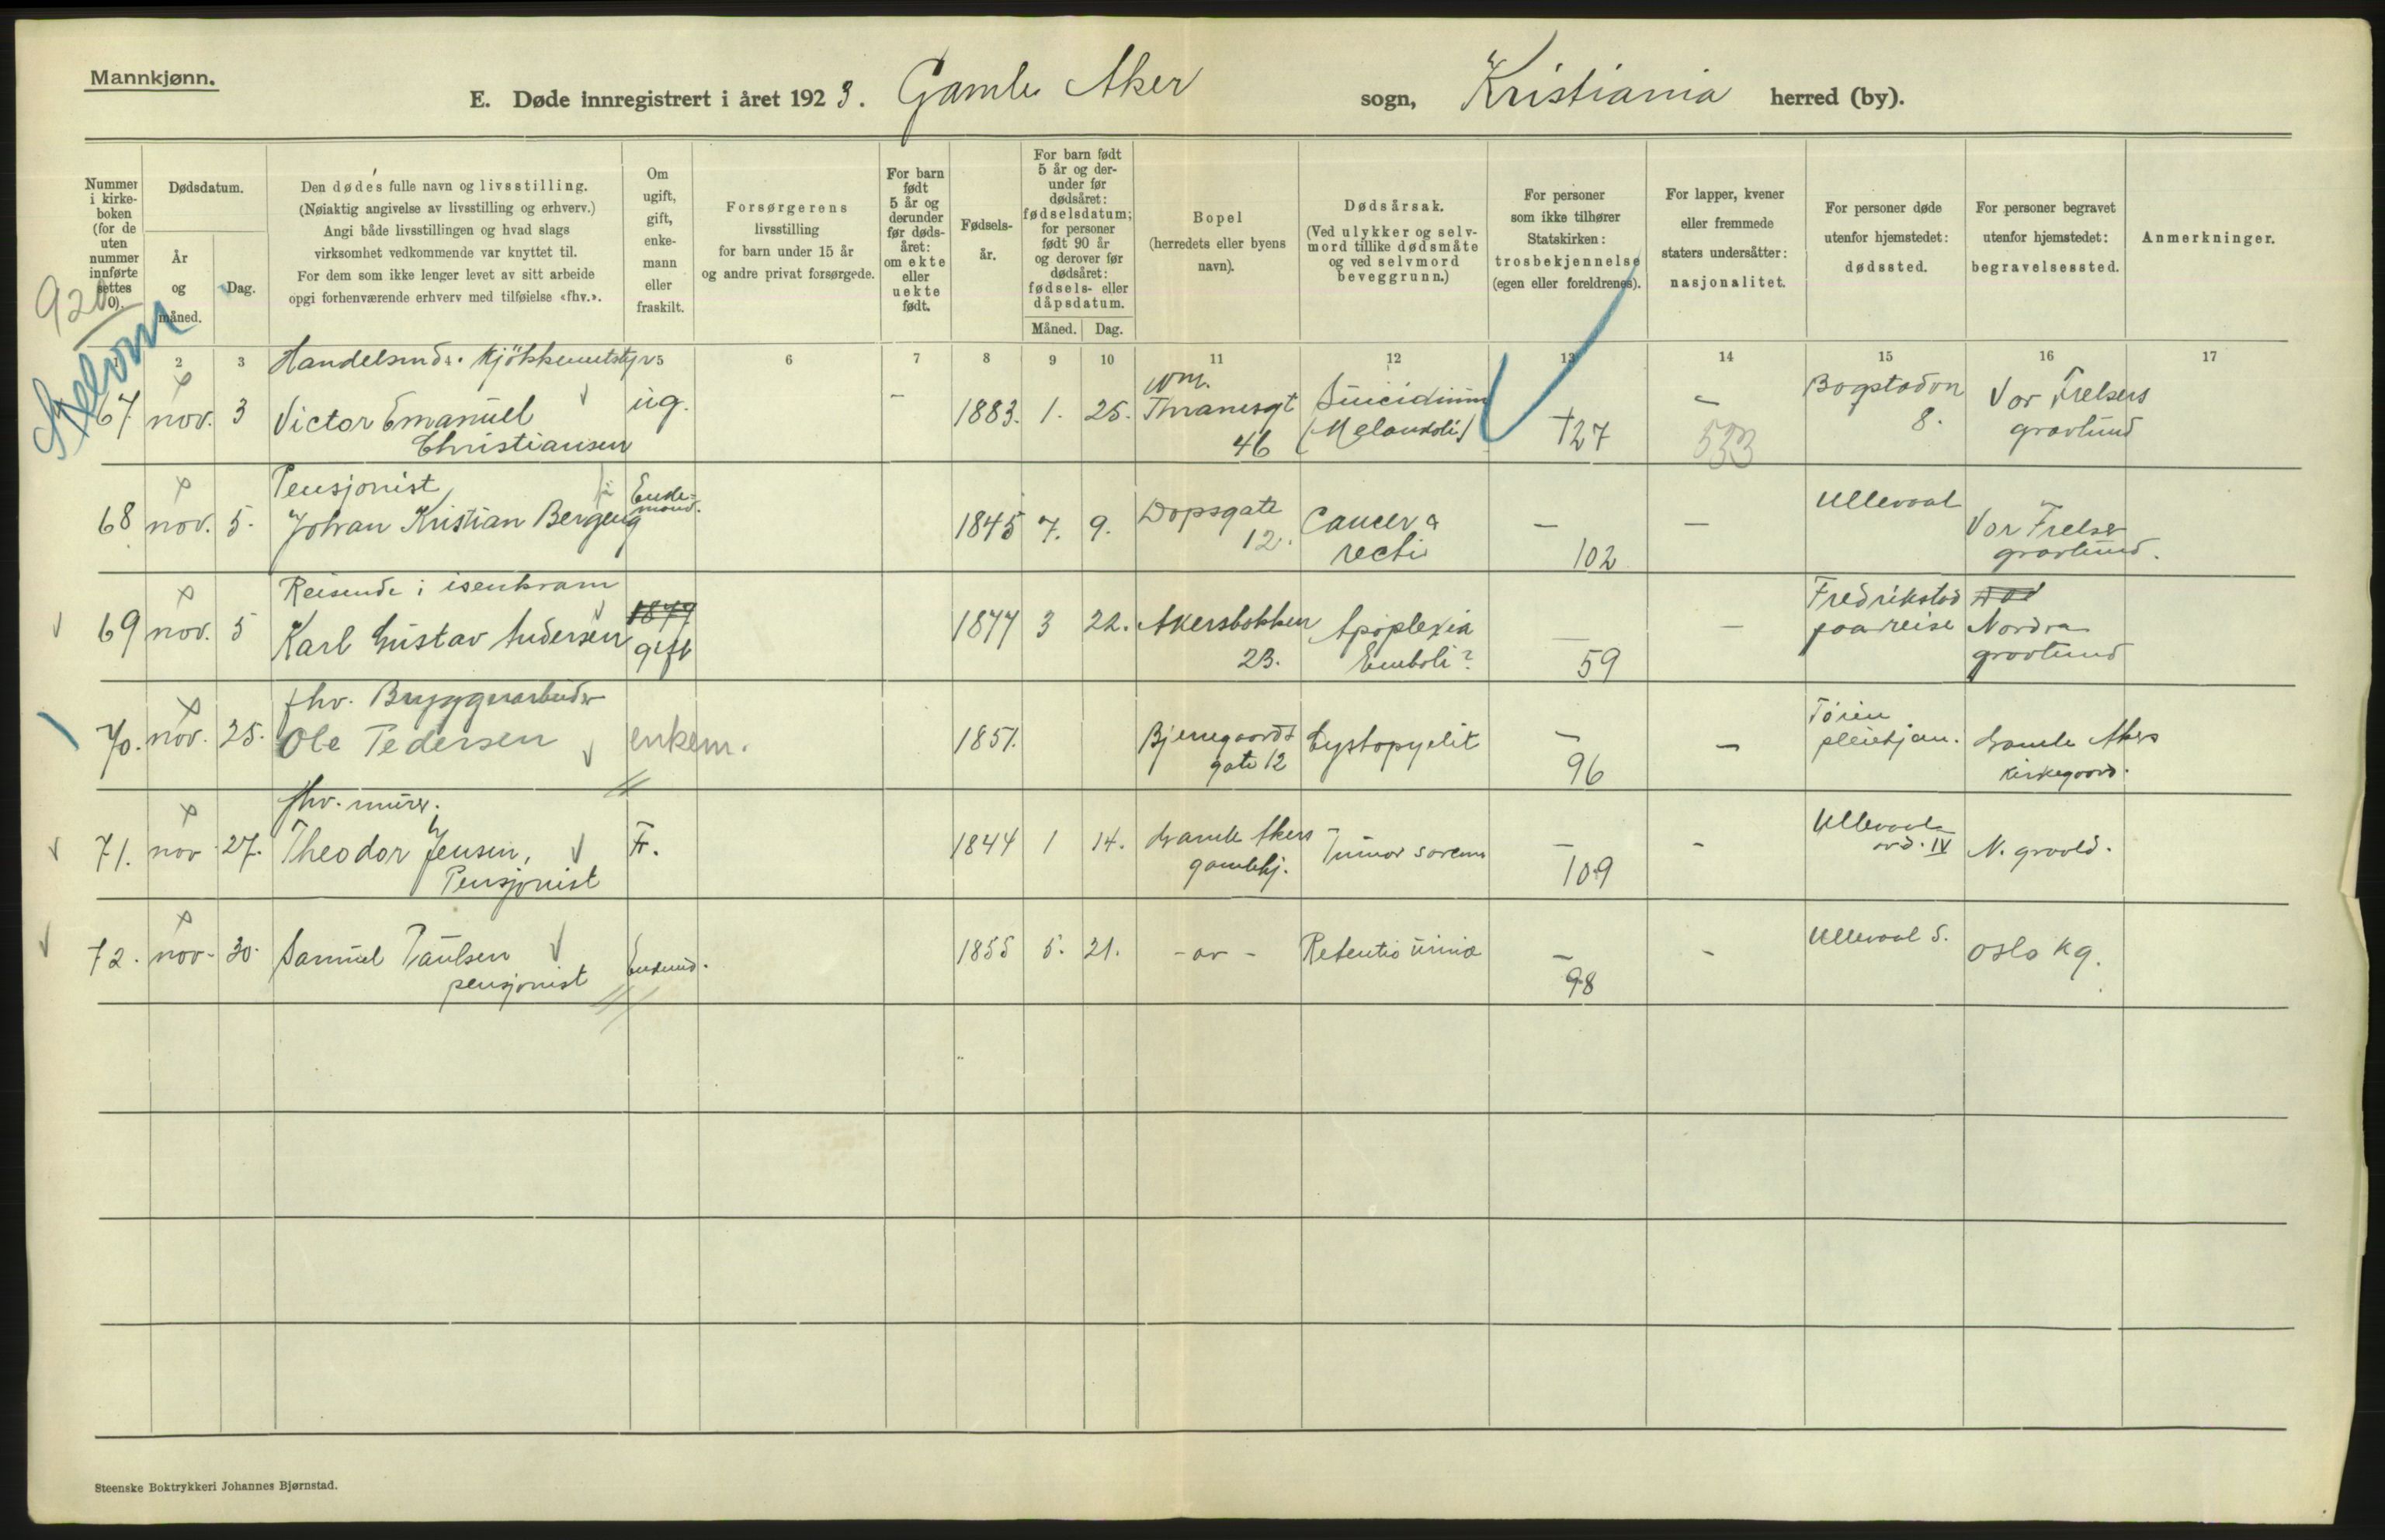 Mannkjønn.
E. Døde innregistrert i året 1923. Gamle Aker sogn, Kristiania herred (by).
Nummer i kirkeboken (for de uten nummer innførte settes 0).
Dødsdatum.
År og måned.
Dag.
Den dødes fulle navn og livsstilling.
(Nøiaktig angivelse av livsstilling og erhverv.)
Angi både livsstillingen og hvad slags
virksomhet vedkommende var knyttet til.
For dem som ikke lenger levet av sitt arbeide
opgi forhenværende erhverv med tilføielse «fhv.».
Om ugift, gift, enkemann eller fraskilt.
Forsørgerens
livsstilling
for barn under 15 år
og andre privat forsørgede.
For barn født 5 år og derunder før dødsåret: om ekte eller uekte født.
Fødselsår.
For barn født 5 år og derunder før dødsåret: fødselsdatum; for personer født 90 år og derover før dødsåret: fødsels- eller dåpsdatum.
Måned. Dag.
Bopel
(herredets eller byens navn).
Dødsårsak.
(Ved ulykker og selvmord tillike dødsmåte og ved selvmord beveggrunn.)
For personer som ikke tilhører Statskirken: trosbekjennelse (egen eller foreldrenes).
For lapper, kvener eller fremmede staters undersåtter: nasjonalitet.
For personer døde utenfor hjemstedet: dødssted.
For personer begravet utenfor hjemstedet: begravelsessted.
Anmerkninger.
920
1 2 3 5 6 7 8 9 10 11 12 13 14 15 16 17
67 nov. 3 Victor Emanuel Christiansen ug. - 1883. 1. 25. Thranesgt 46 Suicidium (Melankoli) 127 - 533 Bogstadvn 8. Vor Frelsers gravlund
68 nov. 5. Pensjonist Johan Kristian Bergeng Enkemand. 1845 7. 9. Dopsgate 12. Cancer recti - 102 - Ullevaal Vor Frelser gravlund.
69 nov. 5 Reisende i isenkram Karl Gustav Andersen 1879 gift 1877 3 22. Akersbakken 23. Apoplexia Emboli? - 59 - Fredrikstad paa reise Nordre gravlund
70. nov. 25. fhv. Bryggerarbeider Ole Pedersen enkem. 1851. Bjerregaards gate 12 Cystopyelit - 96 - Tøien pleiehjem. Gamle Akers kirkegaard.
71. nov 27. fhv. murer. Theodor Jensen, Pensjonist F. 1844 1 14. Gamle Akers gamlehj. Tumor - 109 - Ullevaal avd. IV N. gravld.
72. nov. 30. Samuel Paulsen pensjonist Enkemd. 1855 5. 21. - av - Retentio urinæ - 98 - Ullevaal S. Oslo kg.
Steenske Boktrykkeri Johannes Bjørnstad.